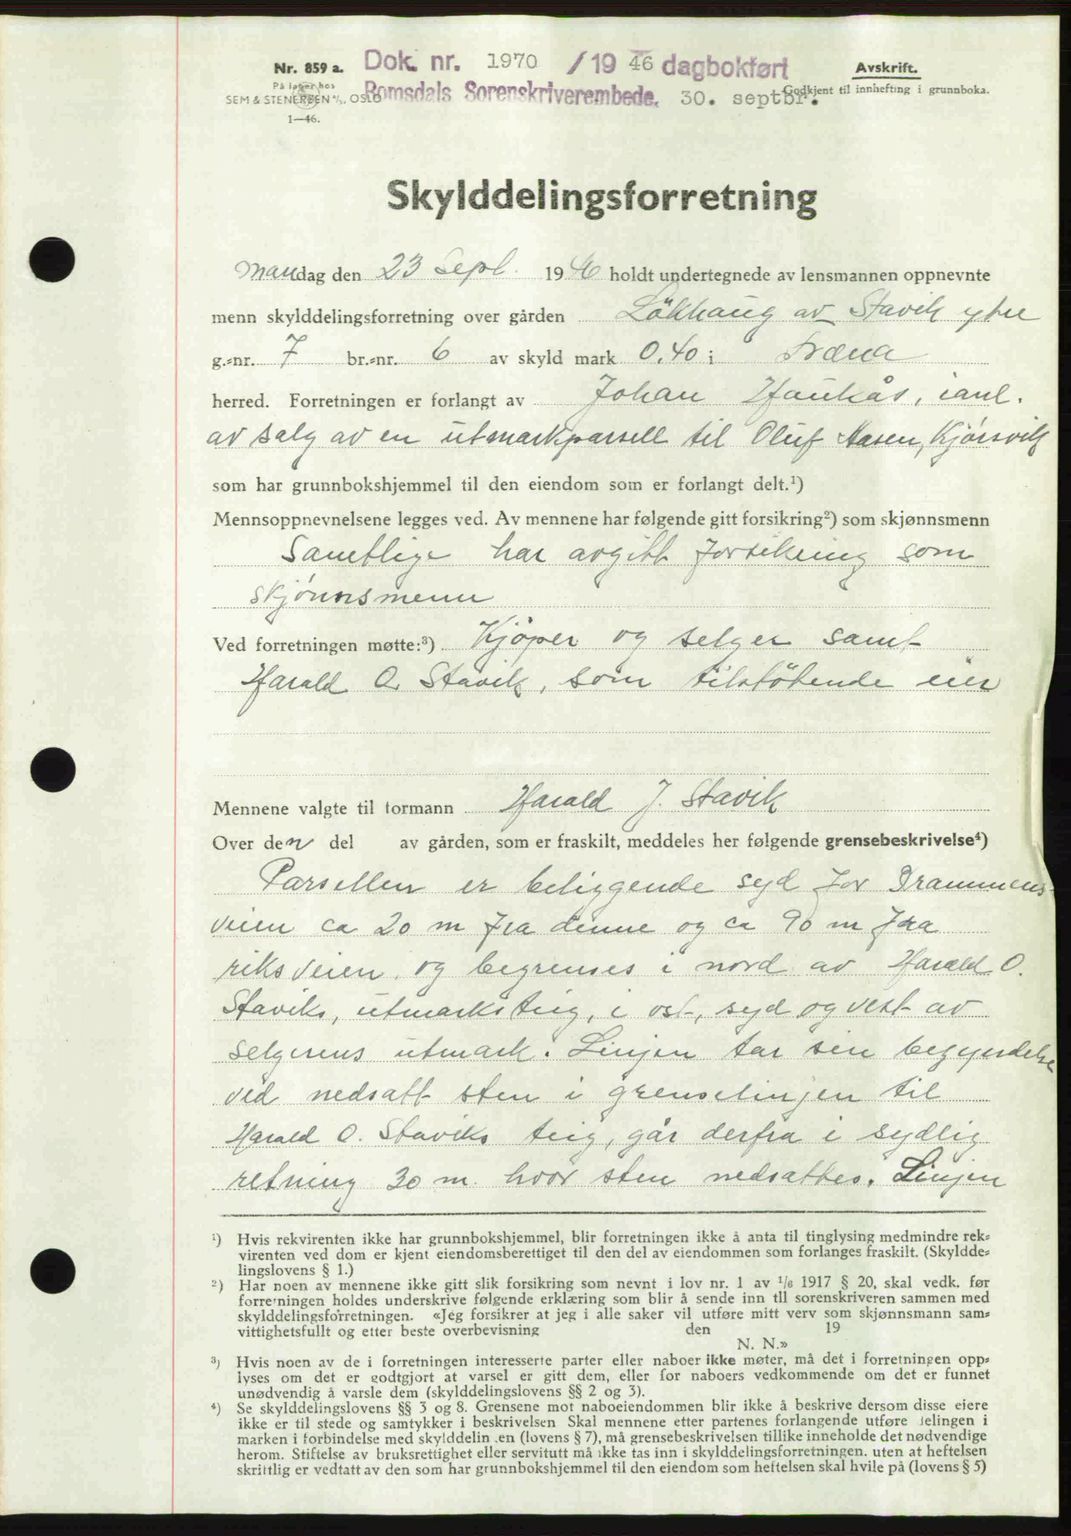 Nr. 859 a.
På lager hos
SEM & STENERSEN A/S, OSLO
1—46.
Dok. nr. 1970 / 19 46 dagbokført
Romsdals Sorenskriverembede. 30. septbr.
Avskrift.
Godkjent til innhefting i grunnboka.
Skylddelingsforretning
Mandag den 23 Sept. 1946 holdt undertegnede av lensmannen oppnevnte
menn skylddelingsforretning over gården Løkhaug av Stavik ytre
g.-nr. 7 br.-nr. 6 av skyld mark 0,40 i Fræna
herred. Forretningen er forlangt av Johan Haukås, i anl.
av salg av en utmarkparsell til Oluf Aasen, Kjørsvik
som har grunnbokshjemmel til den eiendom som er forlangt delt.¹)
Mennsoppnevnelsene legges ved. Av mennene har følgende gitt forsikring²) som skjønnsmenn
Samtlige har avgitt forsikring som
skjønnsmenn
Ved forretningen møtte:³) Kjøper og selger samt
Harald O. Stavik, som tilstøtende eier
Mennene valgte til formann Harald J. Stavik
Over den del av gården, som er fraskilt, meddeles her følgende grensebeskrivelse⁴)
Parsellen er beliggende syd for Brammens-
veien ca 20 m fra denne og ca 90 m fra
riksveien og begrenses i nord av Harald O.
Staviks, utmarksteig, i øst, syd og vest av
selgerens utmark. Linjen tar sin begyndelse
ved nedsatt sten i grenselinjen til
Harald O. Staviks teig, går derfra i sydlig
retning 30 m. hvor sten nedsattes. Linjen
¹) Hvis rekvirenten ikke har grunnbokshjemmel, blir forretningen ikke å anta til tinglysing medmindre rek-
virenten ved dom er kjent eiendomsberettiget til den del av eiendommen som forlanges fraskilt. (Skyldde-
lingslovens § 1.)
²) Har noen av mennene ikke gitt slik forsikring som nevnt i lov nr. 1 av 1/6 1917 § 20, skal vedk. før
forretningen holdes underskrive følgende erklæring som blir å sende inn til sorenskriveren sammen med
skylddelingsforretningen. «Jeg forsikrer at jeg i alle saker vil utføre mitt verv som skjønnsmann sam-
vittighetsfullt og etter beste overbevisning den 19
N. N.»
³) Hvis noen av de i forretningen interesserte parter eller naboer ikke møter, må det i forretningen opp-
lyses om det er godtgjort at varsel er gitt dem, eller for naboers vedkommende om det er funnet
unødvendig å varsle dem (skylddelingslovens §§ 2 og 3).
⁴) Se skylddelingslovens §§ 3 og 8. Grensene mot naboeiendommen blir ikke å beskrive dersom disse eiere
ikke er til stede og samtykker i beskrivelsen Skal mennene etter partenes forlangende utføre delingen i
marken i forbindelse med skylddelingen (lovens § 7), må grensebeskrivelsen tillike inneholde det nødvendige
herom. Stiftelse av bruksrettighet eller servitutt må ikke tas inn i skylddelingsforretningen, uten at heftelsen
skriftlig er vedtatt av den som har grunnbokshjemmel til den eiendom som heftelsen skal hvile på (lovens § 5)